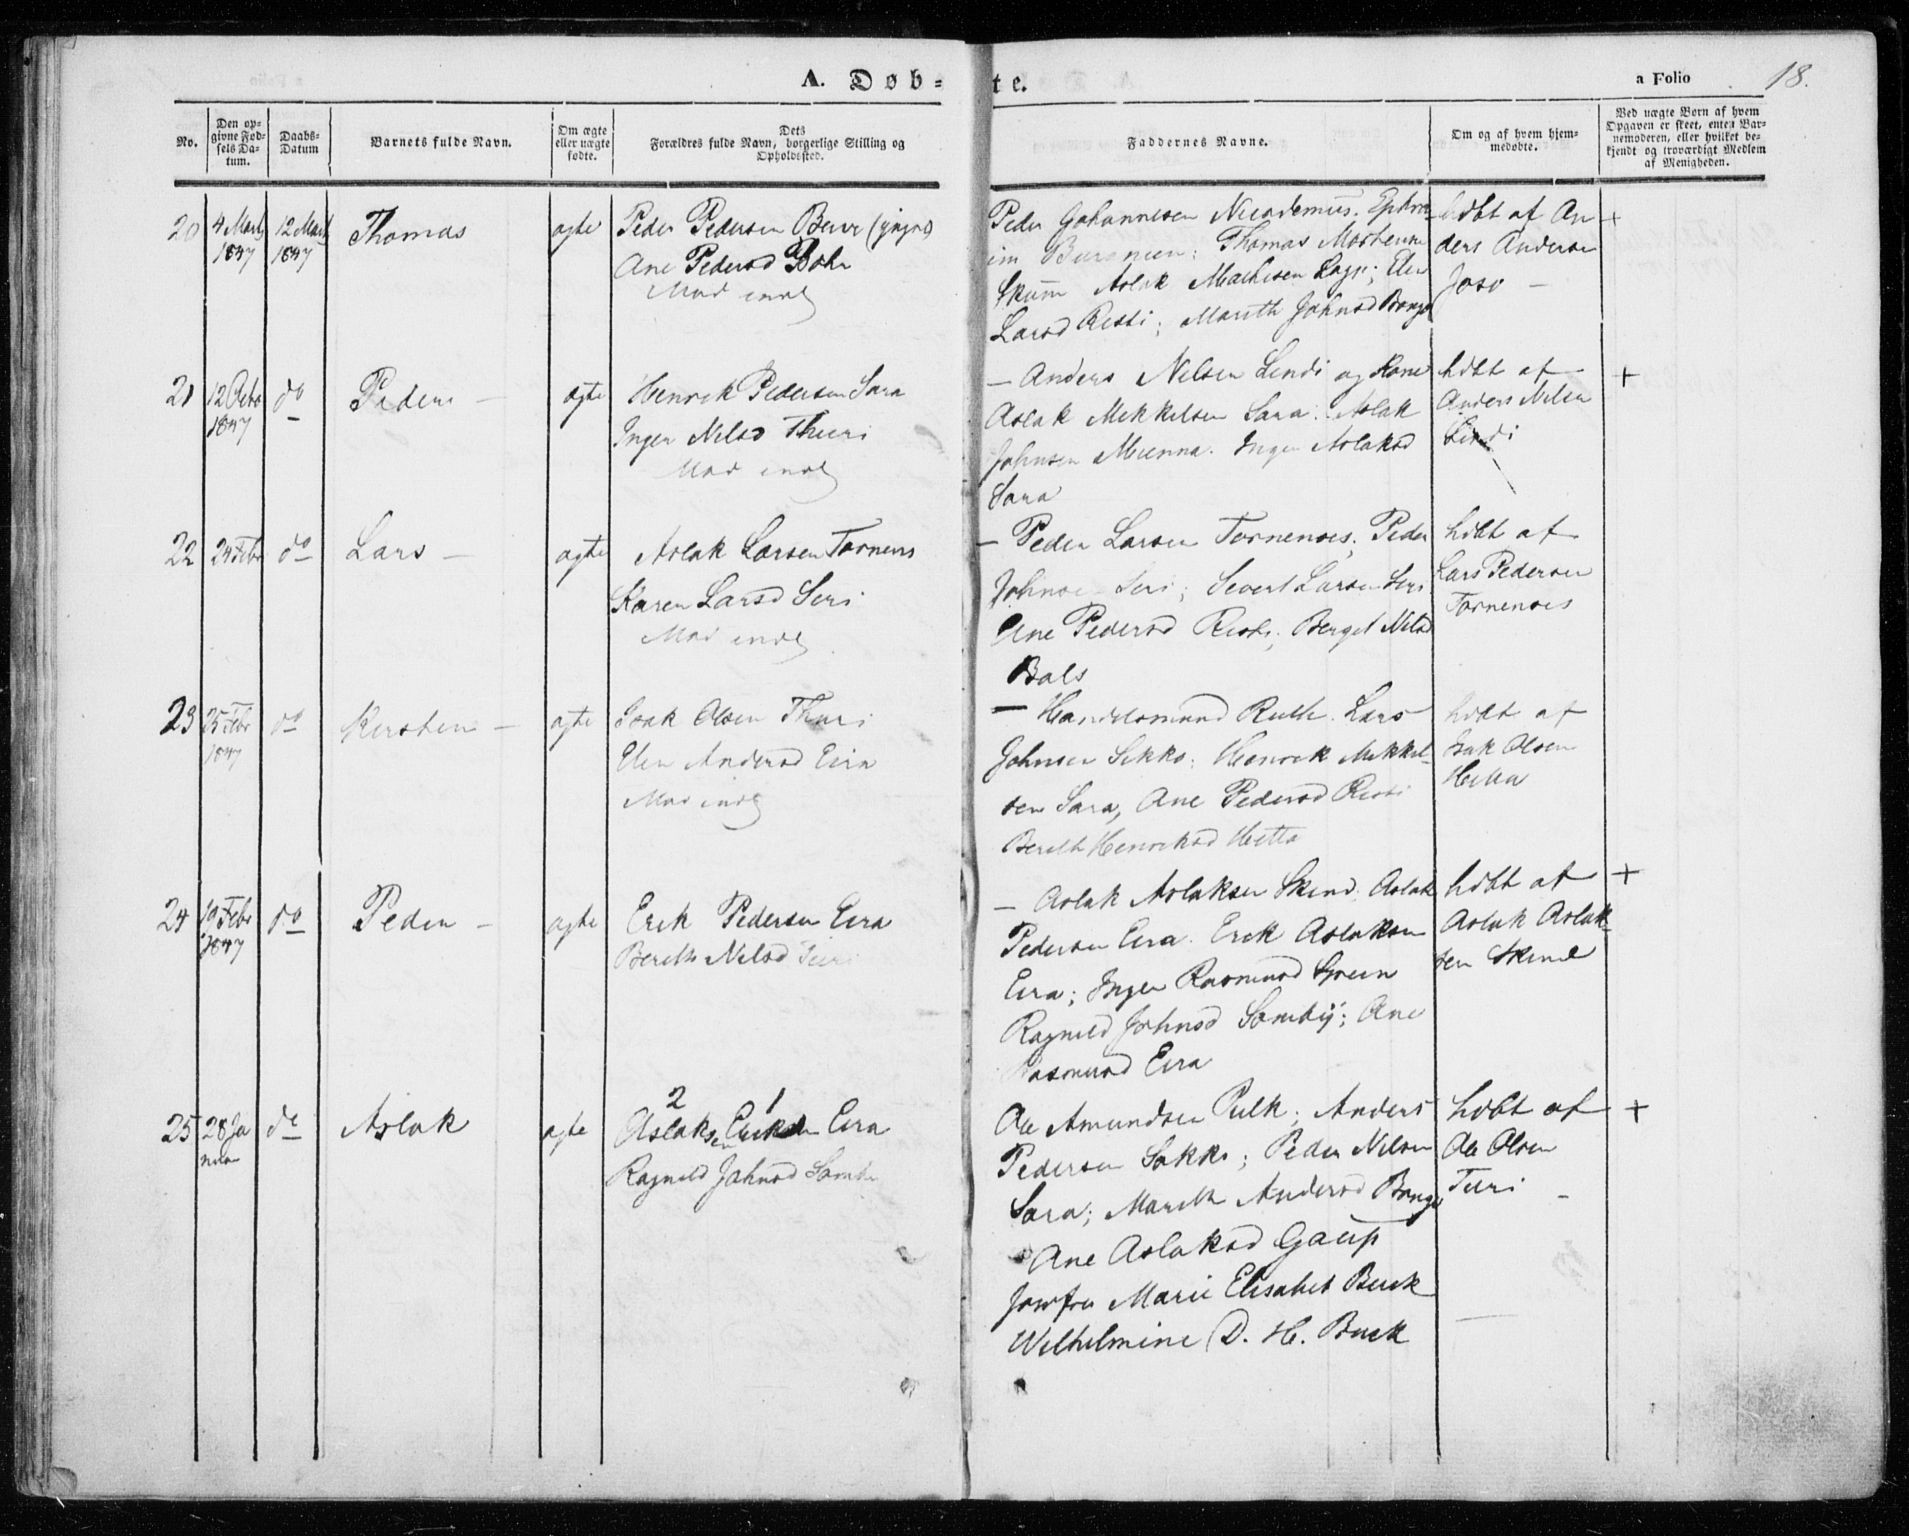 A. Døb=te.
a Folio 18.
No.
Den op=
givne Fød=
sels Da=
tum.
Daabs=
Datum
Barnets fulde Navn.
Om ægte
eller uægte
fødte.
Dets
Forældres fulde Navn, borgerlige Stilling og
Opholdssted.
Faddernes Navne.
Om og af hvem hjem=
medøbte.
Ved uægte Børn af hvem
Opgaven er skeet, enten Bar=
nemoderen, eller hvilket be=
kjendt og troværdigt Medlem
af Menigheden.
20
4 Marts
1847
12 Marts
1847
Thomas
ægte
Peder Pedersen
Ane Pedersd
Peder Johannesen Nicodemus. Ephra-
im Thomas Mortensen
Skum Aslak Mathesen Elen
Larsd Resti; Marith Johnsd Bongo
hdbt af An
ders Andersen
Joso –
+
21
12 Febr
1847
do
Peder –
ægte
Henrik Pedersen Sara
Inger Nilsd Thuri
– Anders Nilsen Lindi og Kone
Aslak Mekkelsen Sara. Aslak
Johnsen Muenna. Inger Aslaksd
Sara
hdbt af
Anders Nilsen
Lindi
+
22
24 Febr
do
Lars –
ægte
Aslak Larsen Tornens
Karen Larsd Seri
– Peder Larsen Tornenses; Peder
Johnsen Seri; Severt Larsen Seri
Ane Pedersd Resti; Berget Nilsd
Bals
hdbt af
Lars Pedersen
Tornenses
23
25 Febr
1847
do
Kirsten –
ægte
Isak Olsen Thuri
Elen Andersd Eira
– Handelsmand Ruth. Lars
Johnsen Sikko; Henrik Mekkel-
sen Sara, Ane Pedersd Resti
Bereth Henriksd Hetta
hdbt af
Isak Olsen
Hetta
24
19 Febr
1847
do
Peder –
ægte
Erik Pedersen Eira
Bereth Nilsd Turi
– Aslak Aslaksen Skind. Aslak
Pedersen Eira. Erik Aslaksen
Eira; Inger Rasmusd Spein
Ragnild Johnsd Sombÿ; Ane
Rasmusd Eira
hdbt af
Aslak Aslak-
sen Skind
+
25
28 Ja
nuar
do
Aslak
ægte
2 1
Aslaksen Eriksen Eira
Ragnild Johnsd Somby
Ole Amundsen Pulk; Anders
Pedersen Sokki; Peder Nilsen
Sara; Marith Andersd Bongo
Ane Aslaksd Gaup
Jomfru Marie Elisabet Buck
Wilhelmine D. H. Buck
hdbt af
Ole Olsen
Turi –
+